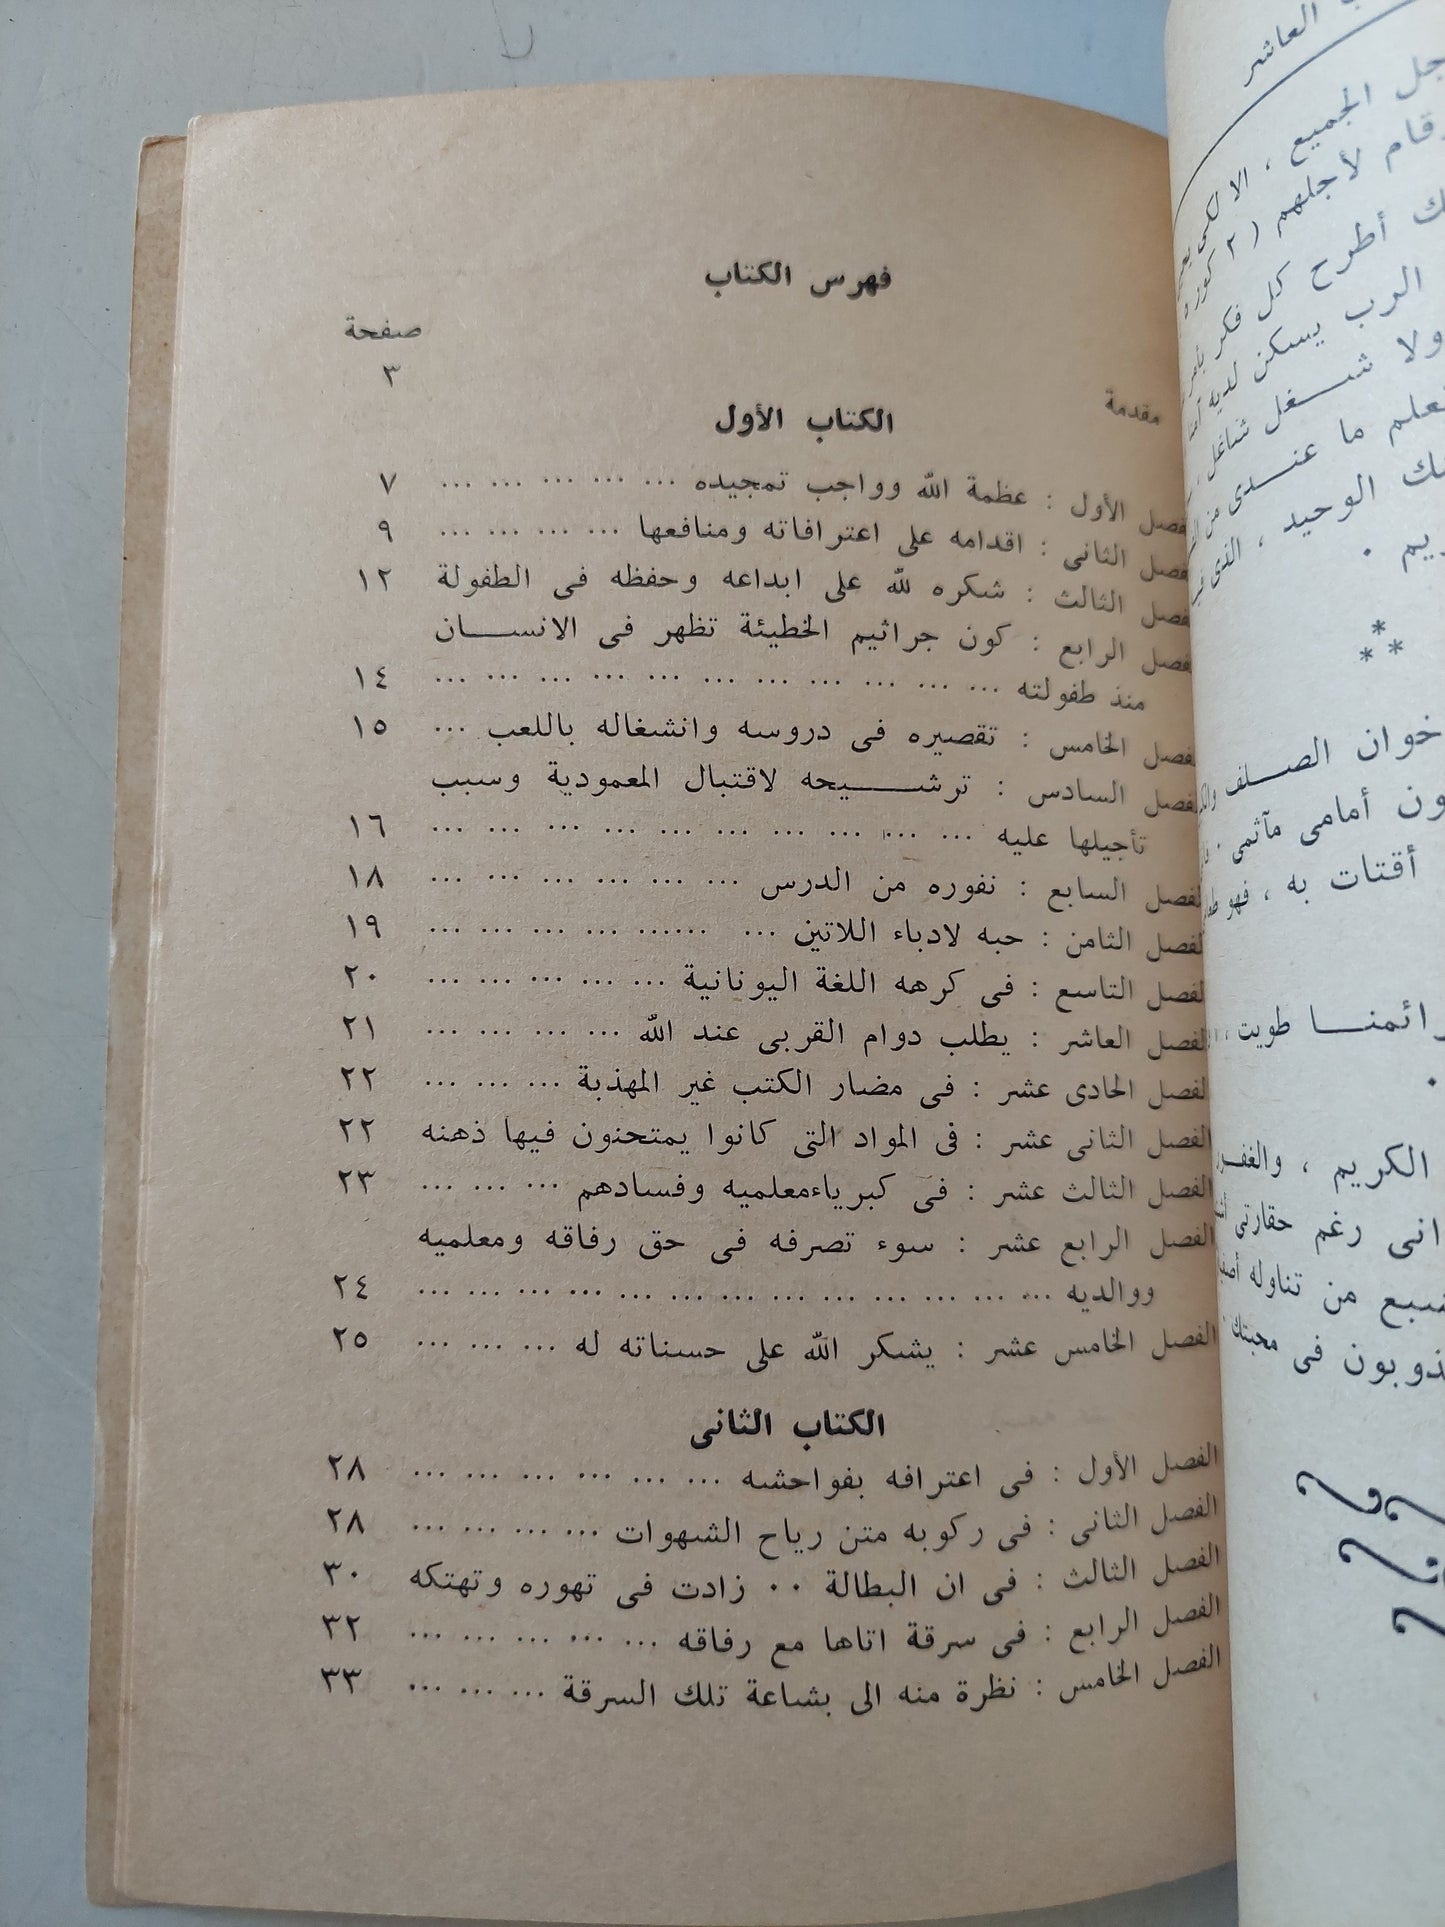 فهرس الكتاب
صفحة
مقدمة ٣
الكتاب الأول
الفصل الأول : عظمة الله وواجب تمجيده ... ... ... ... ... ٧
الفصل الثانى : اقدامه على اعترافاته ومنافعها ... ... ... ... ٩
الفصل الثالث : شكره لله على ابداعه وحفظه فى الطفولة ١٢
الفصل الرابع : كون جراثيم الخطيئة تظهر فى الانســـان
منذ طفولته ... ... ... ... ... ... ... ... ... ... ... ١٤
الفصل الخامس : تقصيره فى دروسه وانشغاله باللعب ... ١٥
الفصل السادس : ترشـــــيحه لاقتبال المعمودية وسبب
تأجيلها عليه ... ... ... ... ... ... ... ... ... ... ... ١٦
الفصل السابع : نفوره من الدرس ... ... ... ... ... ... ١٨
الفصل الثامن : حبه لادباء اللاتين ... ...... ... ... ... ... ١٩
الفصل التاسع : فى كرهه اللغة اليونانية ... ... ... ... ... ٢٠
الفصل العاشر : يطلب دوام القربى عند الله ... ... ... ... ٢١
الفصل الحادى عشر : فى مضار الكتب غير المهذبة ... ... ... ٢٢
الفصل الثانى عشر : فى المواد التى كانوا يمتحنون فيها ذهنه ٢٢
الفصل الثالث عشر : فى كبرياءمعلميه وفسادهم ... ... ... ٢٣
الفصل الرابع عشر : سوء تصرفه فى حق رفاقه ومعلميه
ووالديه ... ... ... ... ... ... ... ... ... ... ... ... ... ٢٤
الفصل الخامس عشر : يشكر الله على حسناته له ... ... ... ٢٥
الكتاب الثانى
الفصل الأول : فى اعترافه بفواحشه ... ... ... ... ... ... ٢٨
الفصل الثانى : فى ركوبه متن رياح الشهوات ... ... ... ... ٢٨
الفصل الثالث : فى ان البطالة ٠٠ زادت فى تهوره وتهتكه ٣٠
الفصل الرابع : فى سرقة اتاها مع رفاقه ... ... ... ... ... ٣٢
الفصل الخامس : نظرة منه الى بشاعة تلك السرقة ... ... ... ٣٣
العاشر
الجميع ، الا لكى
لأجلهم ( ٢
أطرح كل فكر
الرب يسكن لديه
ولا شـــغل شاغل
ما عنـــدى من
الوحيد ، الذى
***
الصـــلف
أمامى مآثمى ٠
أقتات به ، فهو
طويت ،
الكريم ،
رغم حقارتى
من تناوله
فى محبتك